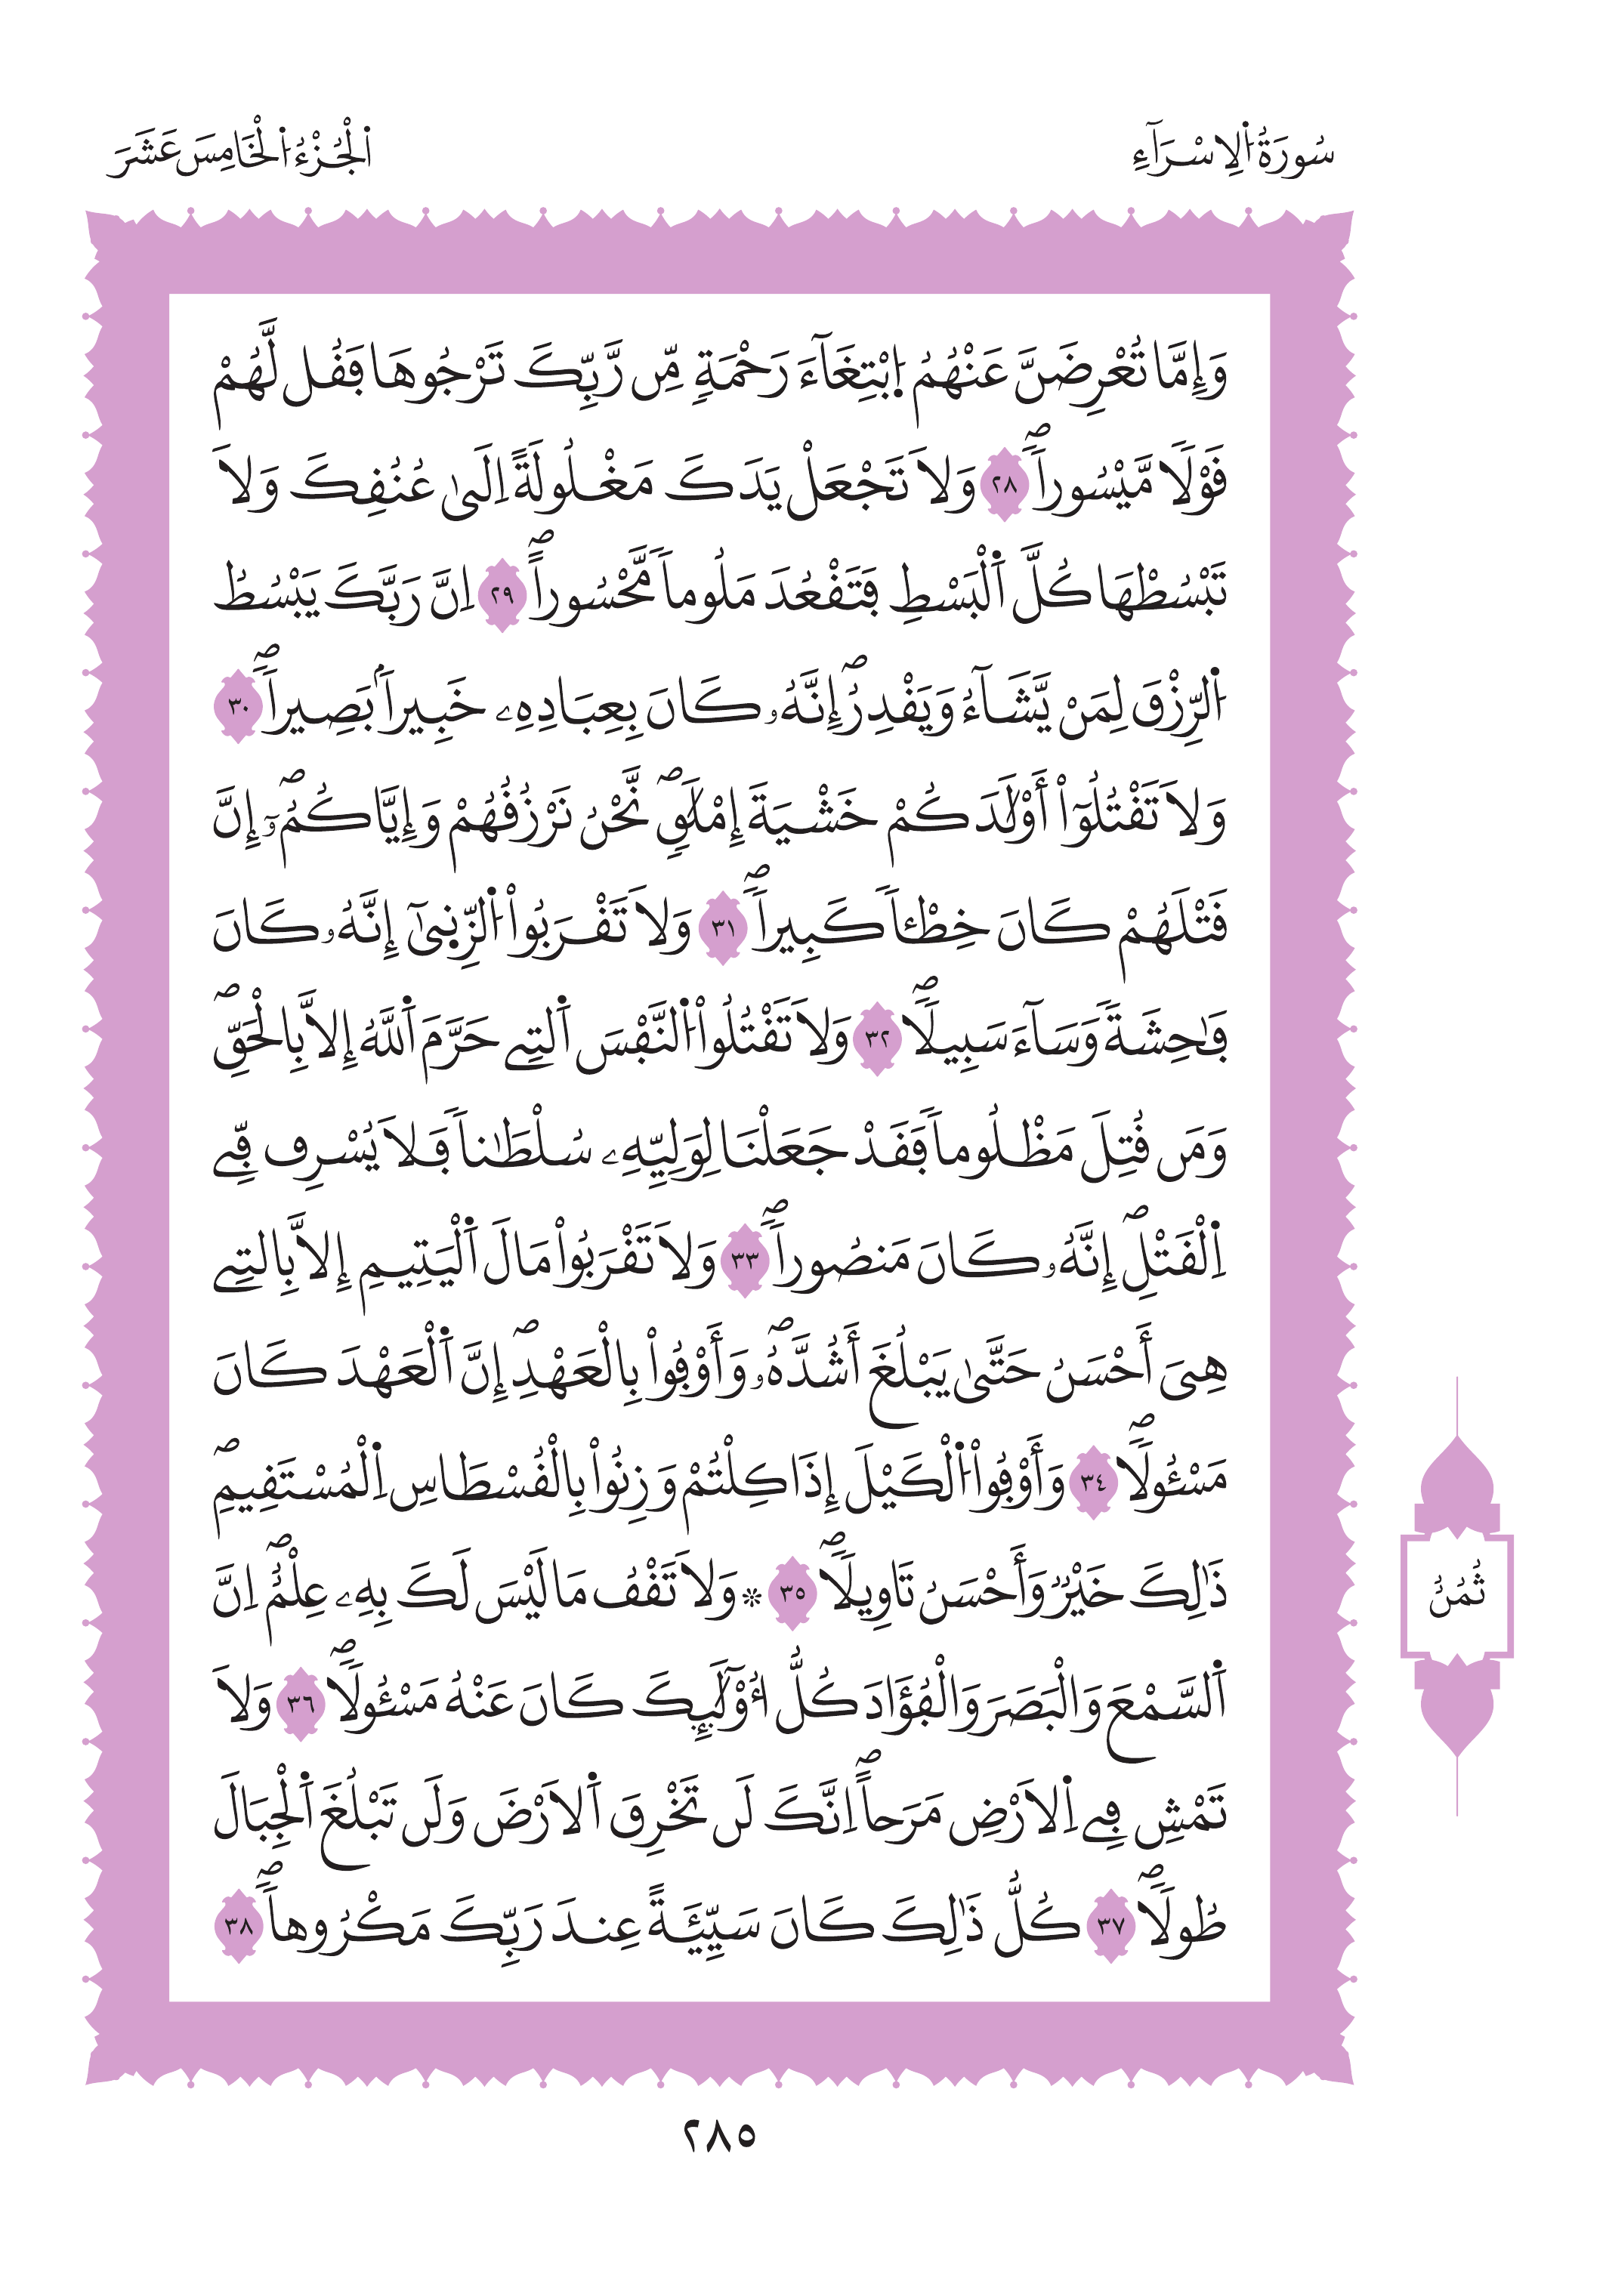 سُورَةُ اُ۬لِاسْرَآءِ
اَ۬لْجُزْءُ اُ۬لْخَامِسَ عَشَرَ
وَإِمَّا تُعْرِضَنَّ عَنْهُمُ اُ۪بْتِغَآءَ رَحْمَةٖ مِّن رَّبِّكَ تَرْجُوهَا فَقُل لَّهُمْ
قَوْلاٗ مَّيْسُوراٗۖ ٢٨ وَلَا تَجْعَلْ يَدَكَ مَغْلُولَةً اِلَىٰ عُنُقِكَ وَلَا
تَبْسُطْهَا كُلَّ اَ۬لْبَسْطِ فَتَقْعُدَ مَلُوماٗ مَّحْسُوراًۖ ٢٩ اِنَّ رَبَّكَ يَبْسُطُ
اُ۬لرِّزْقَ لِمَنْ يَّشَآءُ وَيَقْدِرُۖ إِنَّهُۥ كَانَ بِعِبَادِهِۦ خَبِيراَۢ بَصِيراٗۖ ٣٠
وَلَا تَقْتُلُوٓاْ أَوْلَٰدَكُمْ خَشْيَةَ إِمْلَٰقٖۖ نَّحْنُ نَرْزُقُهُمْ وَإِيَّاكُمُۥٓۖ إِنَّ
قَتْلَهُمْ كَانَ خِطْـٔاٗ كَبِيراٗۖ ٣١ وَلَا تَقْرَبُواْ اُ۬لزِّن۪ىٰٓ إِنَّهُۥ كَانَ
فَٰحِشَةٗ وَسَآءَ سَبِيلاٗۖ ٣٢ وَلَا تَقْتُلُواْ اُ۬لنَّفْسَ اَ۬لتِے حَرَّمَ اَ۬للَّهُ إِلَّا بِالْحَقِّۖ
وَمَن قُتِلَ مَظْلُوماٗ فَقَدْ جَعَلْنَا لِوَلِيِّهِۦ سُلْطَٰناٗ فَلَا يُسْرِف فِّے
اِ۬لْقَتْلِۖ إِنَّهُۥ كَانَ مَنصُوراٗۖ ٣٣ وَلَا تَقْرَبُواْ مَالَ اَ۬لْيَتِيمِ إِلَّا بِالتِے
هِيَ أَحْسَنُ حَتَّىٰ يَبْلُغَ أَشُدَّهُۥۖ وَأَوْفُواْ بِالْعَهْدِۖ إِنَّ اَ۬لْعَهْدَ كَانَ
مَسْـُٔولاٗۖ ٣٤ وَأَوْفُواْ اُ۬لْكَيْلَ إِذَا كِلْتُمْ وَزِنُواْ بِالْقُسْطَاسِ اِ۬لْمُسْتَقِيمِۖ
ذَٰلِكَ خَيْرٞ وَأَحْسَنُ تَاوِيلاٗۖ ٣٥ ۞ وَلَا تَقْفُ مَا لَيْسَ لَكَ بِهِۦ عِلْمٌۖ اِنَّ
اَ۬لسَّمْعَ وَالْبَصَرَ وَالْفُؤَادَ كُلُّ أُوْلَٰٓئِكَ كَانَ عَنْهُ مَسْـُٔولاٗۖ ٣٦ وَلَا
تَمْشِ فِے اِ۬لَارْضِ مَرَحاًۖ اِنَّكَ لَن تَخْرِقَ اَ۬لَارْضَ وَلَن تَبْلُغَ اَ۬لْجِبَالَ
طُولاٗۖ ٣٧ كُلُّ ذَٰلِكَ كَانَ سَيِّئَةً عِندَ رَبِّكَ مَكْرُوهاٗۖ ٣٨
ثُمُنُ
٢٨٥